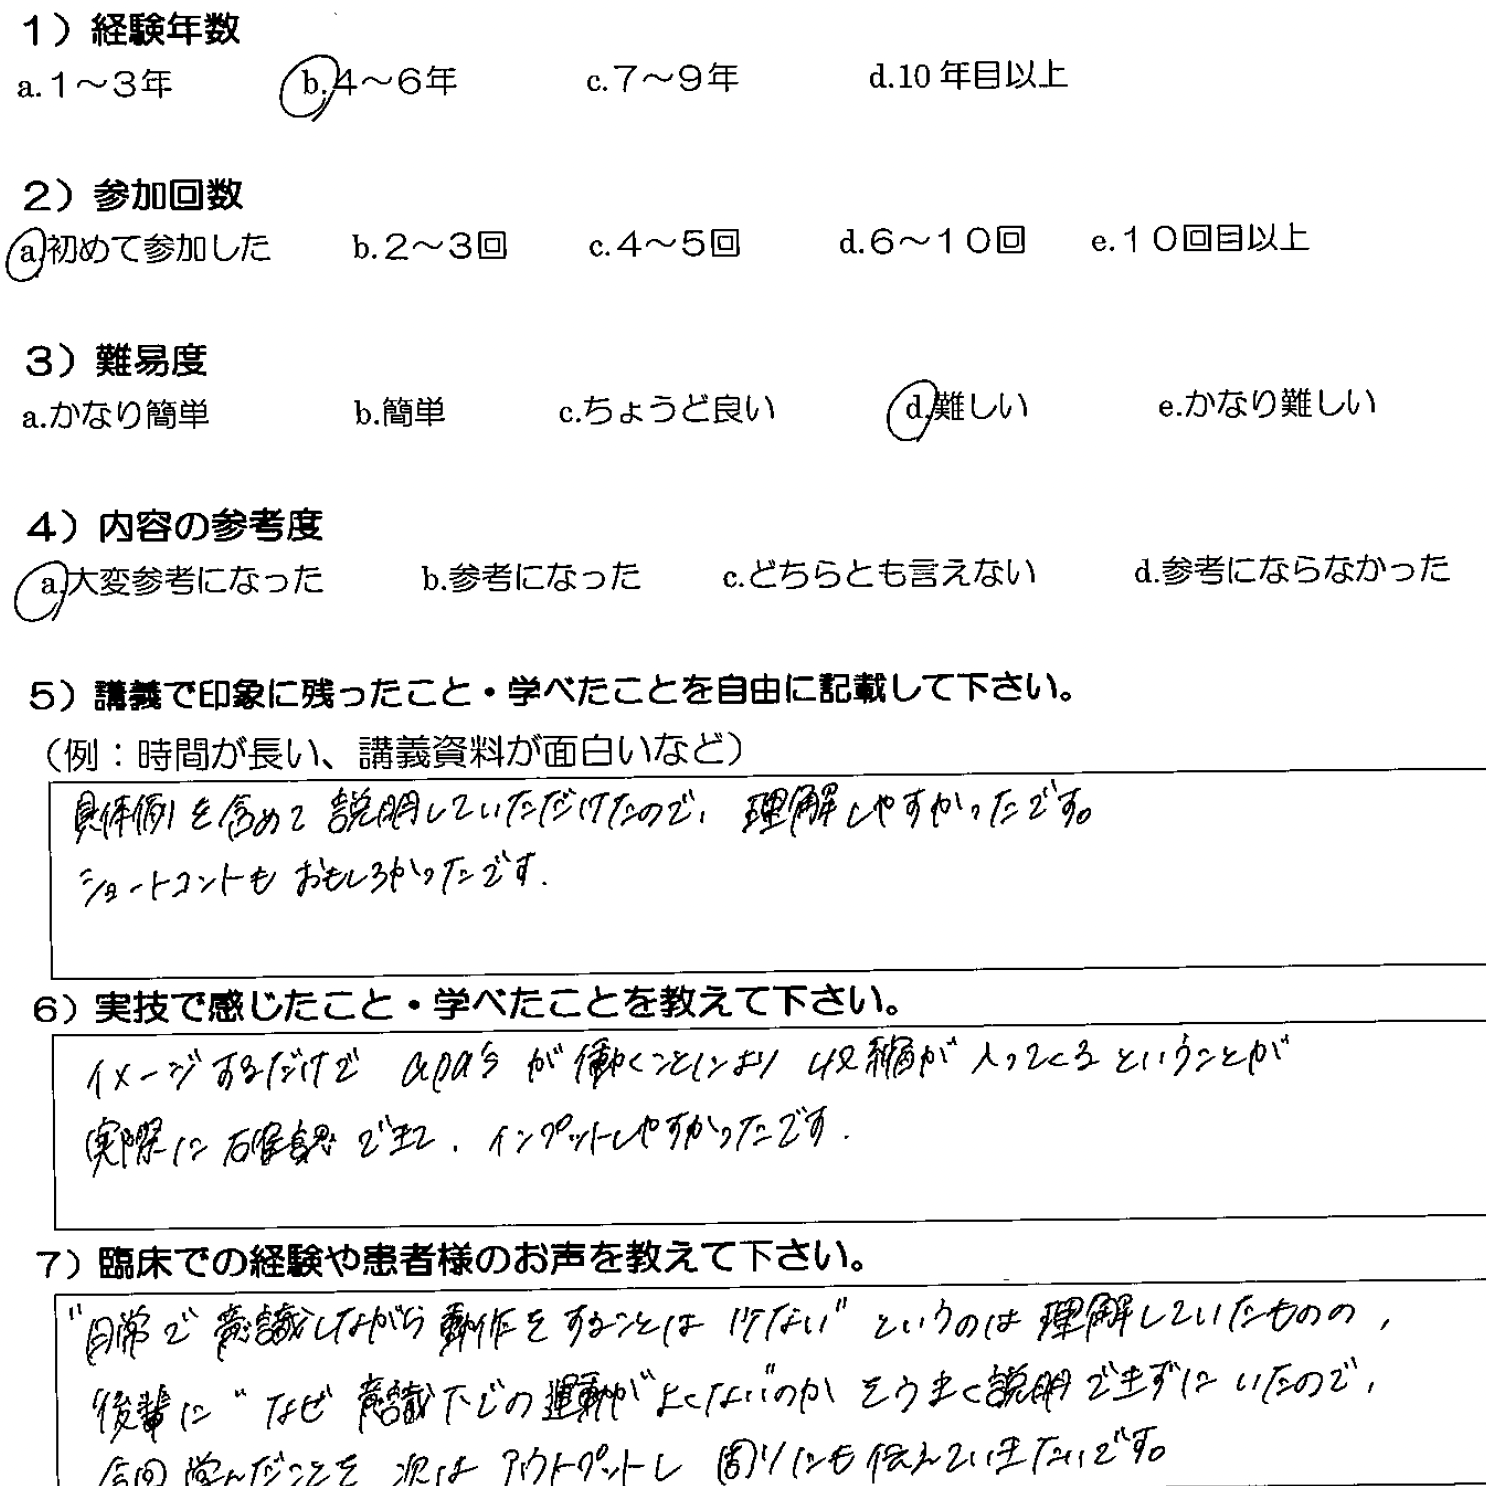 1）経験年数
a.1～3年 b.4～6年 c.7～9年 d.10年目以上
2）参加回数
a.初めて参加した b.2～3回 c.4～5回 d.6～10回 e.10回目以上
3）難易度
a.かなり簡単 b.簡単 c.ちょうど良い d.難しい e.かなり難しい
4）内容の参考度
a.大変参考になった b.参考になった c.どちらとも言えない d.参考にならなかった
5）講義で印象に残ったこと・学べたことを自由に記載して下さい。
（例：時間が長い、講義資料が面白いなど）
具体例を含めて説明していただけたので、理解しやすかったです。
ショートコントもおもしろかったです.
6）実技で感じたこと・学べたことを教えて下さい。
イメージするだけで apa's が働くことにより収縮が入ってくるということが
実際に確認できて、インプットしやすかったです.
7）臨床での経験や患者様のお声を教えて下さい。
"日常で意識しながら動作をすることは少ない" というのは理解していたものの,
後輩に "なぜ意識下での運動がよくない"のか をうまく説明できずにいたので,
今回学んだことを 次は アウトプットし 周りにも伝えていきたいです。